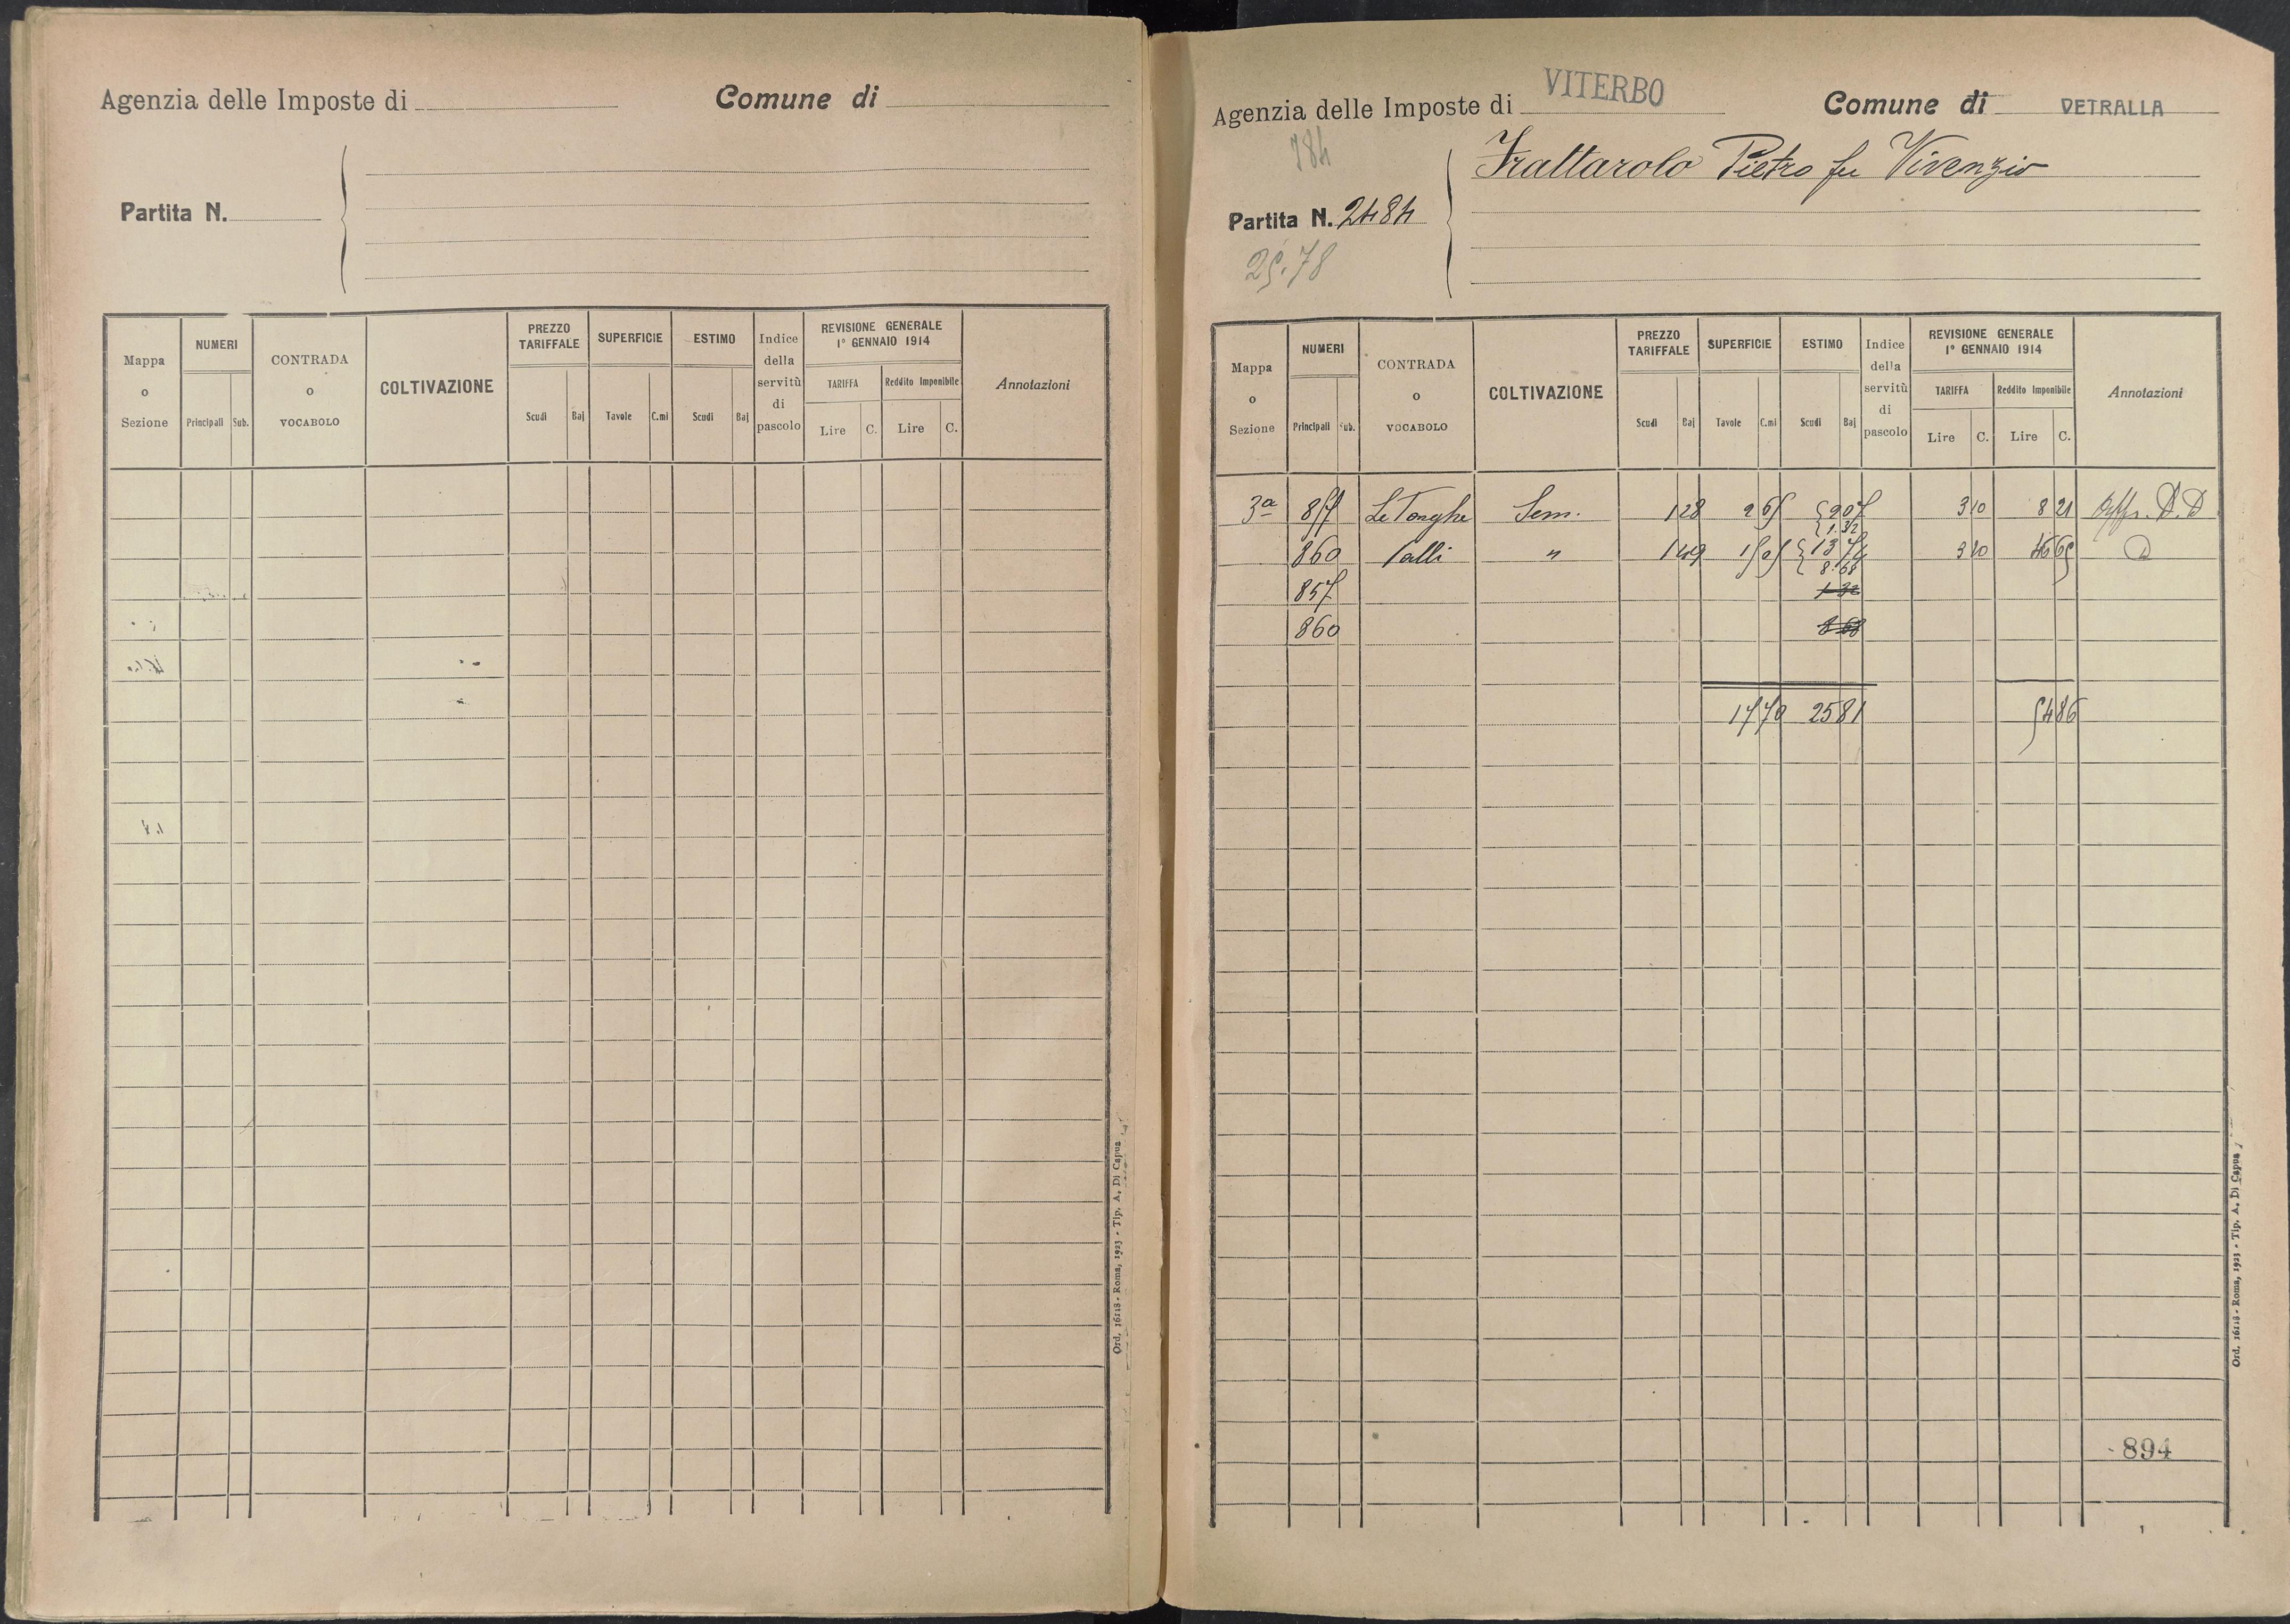 Agenzia delle Imposte di
Comune di
Partita N.
Mappa o Sezione
NUMERI
Principali Sub.
CONTRADA o VOCABOLO
COLTIVAZIONE
PREZZO TARIFFALE
Scudi Baj
SUPERFICIE
Tavole C.mi
ESTIMO
Scudi Baj
Indice della servitù di pascolo
REVISIONE GENERALE 1° GENNAIO 1914
TARIFFA Reddito Imponibile
Lire C. Lire C.
Annotazioni
Ord. 16118 - Roma, 1923 - Tip. A. Di Capua
Agenzia delle Imposte di VITERBO
Comune di VETRALLA
784
Frattarolo Pietro fu Vivenzio
Partita N. 2484
25.78
Mappa o Sezione
NUMERI
Principali Sub.
CONTRADA o VOCABOLO
COLTIVAZIONE
PREZZO TARIFFALE
Scudi Baj
SUPERFICIE
Tavole C.mi
ESTIMO
Scudi Baj
Indice della servitù di pascolo
REVISIONE GENERALE 1° GENNAIO 1914
TARIFFA Reddito Imponibile
Lire C. Lire C.
Annotazioni
3a 857 Le Sem. 1 28 2 65 2 07 3 10 8 21 D.D
1.32
860 Valli " 1 49 15 05 13 74 3 10 46 65 D
8.68
857 1 32
860 8 68
17 70 25 81 54 86
894
Ord. 16118 - Roma, 1923 - Tip. A. Di Capua